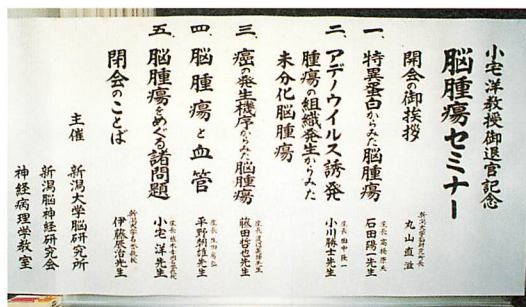 小宅洋教授御退官記念
脳腫瘍セミナー
開会の御挨拶
丸山直滋
一、特異蛋白からみた脳腫瘍
石田陽一先生
二、アデノウイルス誘発
腫瘍の組織発生からみた
未分化脳腫瘍
座長 田中隆一
小川勝士先生
三、癌の発生機序からみた脳腫瘍
藤田哲也先生
四、脳腫瘍と血管
平野朝雄先生
五、脳腫瘍をめぐる諸問題
小宅 洋先生
閉会のことば
新潟大学名誉教授
伊藤辰治先生
主催 新潟大学脳研究所
新潟脳神経研究会
神経病理学教室